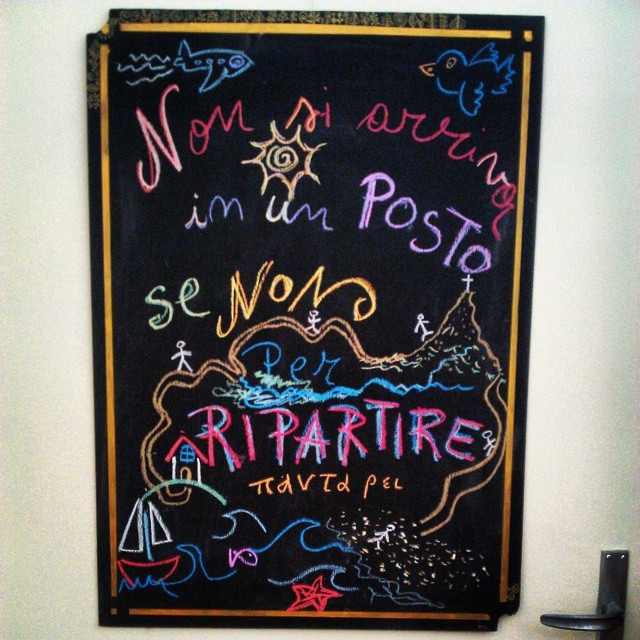 Non si arriva
in un POSTO
se NON
Per
RIPARTIRE
παντα ρει